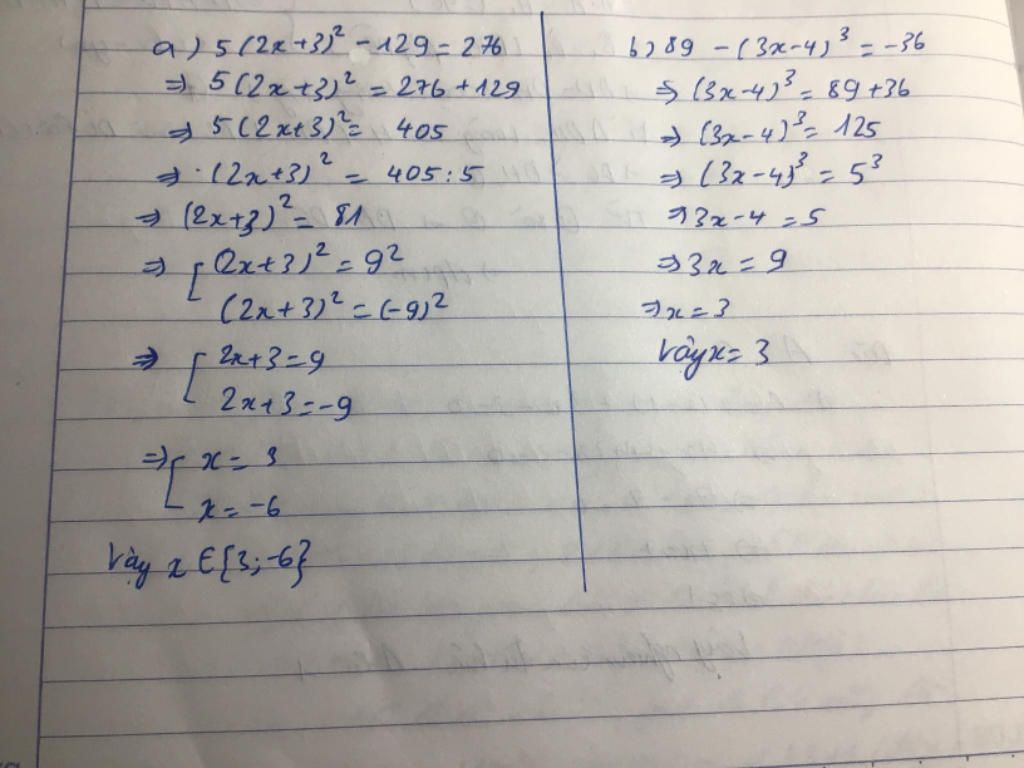 a) 5(2x+3)² - 129 = 276
⇒ 5(2x+3)² = 276 + 129
⇒ 5(2x+3)² = 405
⇒ (2x+3)² = 405 : 5
⇒ (2x+3)² = 81
⇒ [ (2x+3)² = 9²
(2x+3)² = (-9)²
⇒ [ 2x+3 = 9
2x+3 = -9
⇒ [ x = 3
x = -6
Vậy x ∈ {3; -6}
b) 89 - (3x-4)³ = -36
⇒ (3x-4)³ = 89+36
⇒ (3x-4)³ = 125
⇒ (3x-4)³ = 5³
⇒ 3x-4 = 5
⇒ 3x = 9
⇒ x = 3
Vậy x = 3